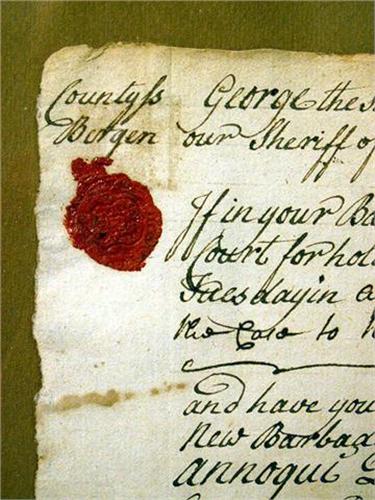 County ss George the
Bergen our Sheriff of
If in your Ba
Court for hol
Tuesday in
the Case to
and have you
New Barbad
annoqui